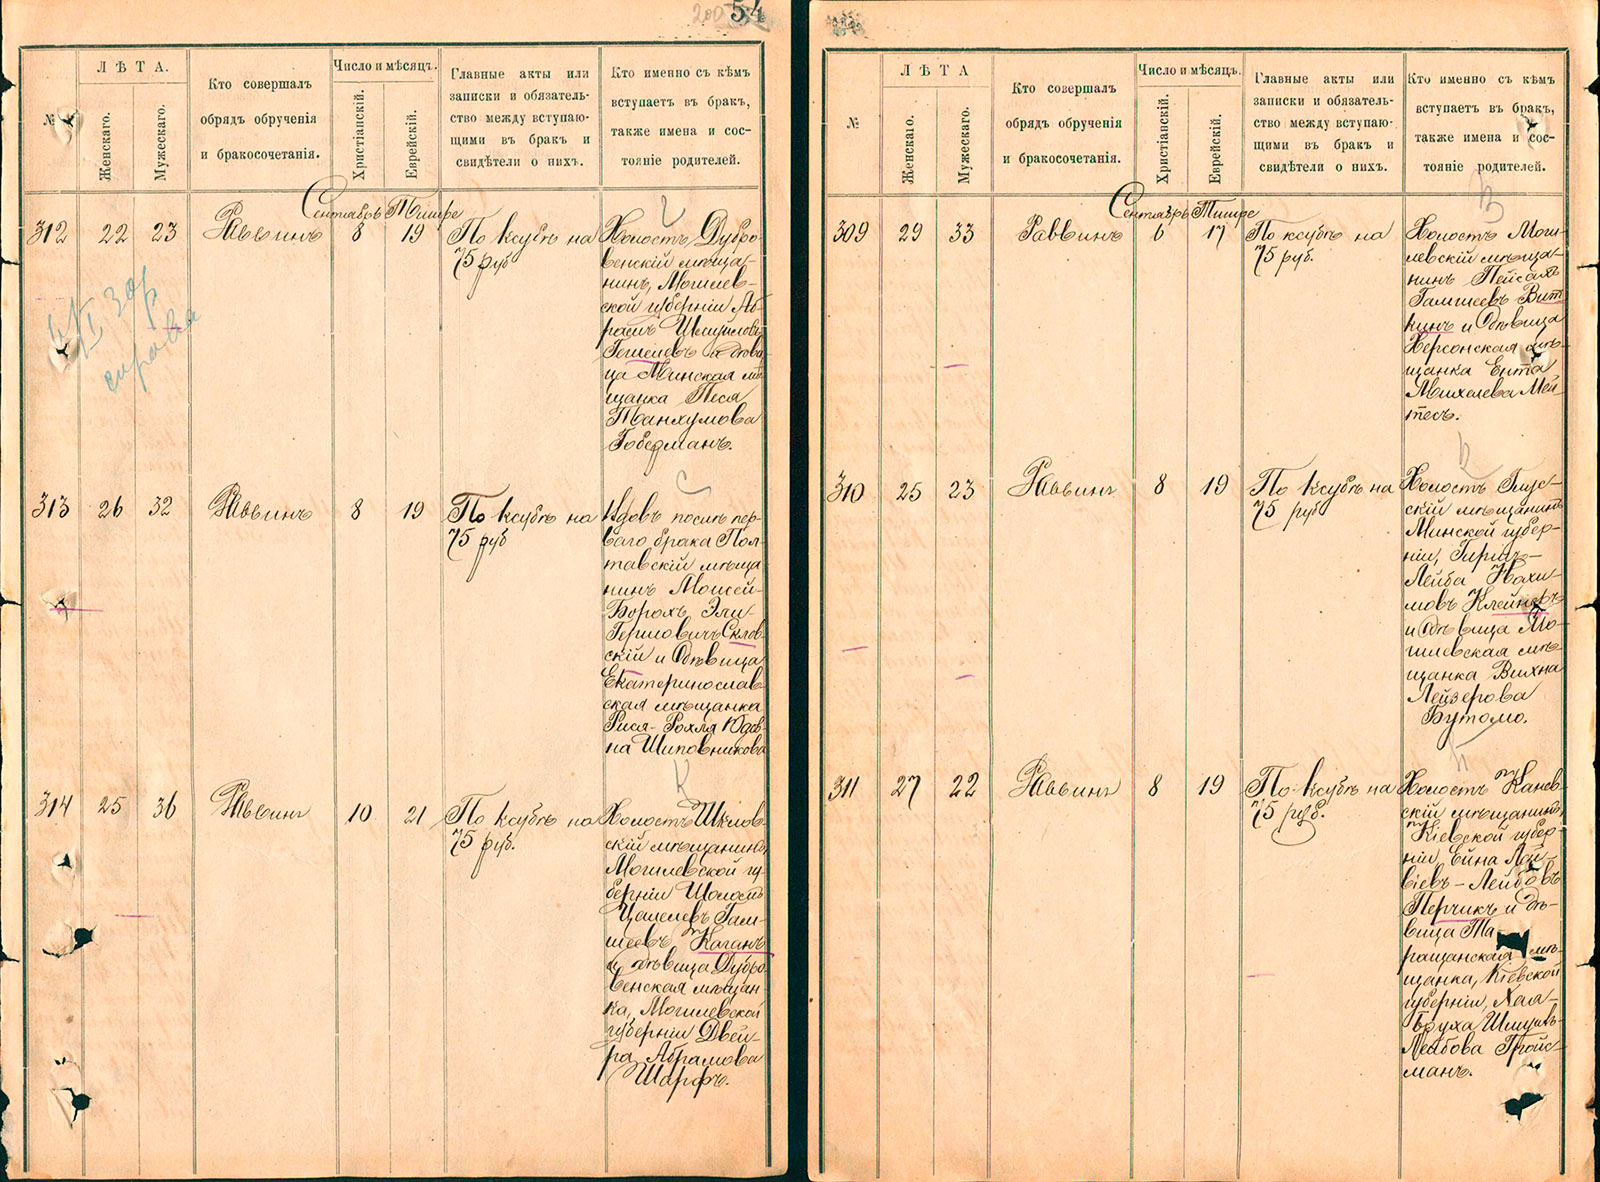 200 54
№
ЛѢТА.
Женскаго.
Мужескаго.
Кто совершалъ
обрядъ обрученія
и бракосочетанія.
Число и мѣсяцъ.
Христіанскій.
Еврейскій.
Главные акты или
записки и обязатель-
ство между вступаю-
щими въ бракъ и
свидѣтели о нихъ.
Кто именно съ кѣмъ
вступаетъ въ бракъ,
также имена и сос-
тояніе родителей.
Сентябрь Тишре
312 22 23 Раввинъ 8 19
По ксубѣ на
75 руб
Холостъ Дубро-
венскій мѣща-
нинъ, Могилев-
ской губерніи Аб-
рамъ
Гешелевъ и дѣви-
ца Минская мѣ-
щанка Песя
Танхумова
Гоберманъ.
справа
313 26 32 Раввинъ 8 19
По ксубѣ на
75 руб
С
Вдовъ послѣ пер-
ваго брака Пол-
тавскій мѣща-
нинъ Мошей-
Борохъ Эли-
Гершовичъ Склов-
скій и дѣвица
Екатеринослав-
ская мѣщанка
Рися-Рохля Юдов-
на Шиповникова
314 25 36 Раввинъ 10 21
По ксубѣ на
75 руб.
К
Холостъ Шклов-
скій мѣщанинъ,
Могилевской гу-
берніи Шоломъ
Гам-
шеевъ Каганъ
и дѣвица Дубро-
венская мѣщан-
ка, Могилевской
губерніи Двей-
ра Абрамова
Шарфъ.
№
ЛѢТА
Женскаго.
Мужескаго.
Кто совершалъ
обрядъ обрученія
и бракосочетанія.
Число и мѣсяцъ.
Христіанскій.
Еврейскій.
Главные акты или
записки и обязатель-
ство между вступаю-
щими въ бракъ и
свидѣтели о нихъ.
Кто именно съ кѣмъ
вступаетъ въ бракъ,
также имена и сос-
тояніе родителей.
В
Сентябрь Тишре
309 29 33 Раввинъ 6 17
По ксубѣ на
75 руб.
Холостъ Моги-
левскій мѣща-
нинъ Пейсахъ
Гамшеевъ Вит-
кинъ и дѣвица
Херсонская мѣ-
щанка Ента
Михелева Мей-
тесъ.
310 25 23 Раввинъ 8 19
По ксубѣ на
75 руб
Холостъ Глус-
скій мѣщанинъ
Минской губер-
ніи, Гиршъ-
Лейба Нохи-
мовъ Клейнеръ
и дѣвица Мо-
гилевская мѣ-
щанка Вихна
Лейзерова
Бутомо.
311 27 22 Раввинъ 8 19
По ксубѣ на
75 руб.
П
Холостъ Канев-
скій мѣщанинъ,
Кіевской губер-
ніи Ейна
віевъ-Лейбовъ
Перчикъ и дѣ-
вица Та-
ращанская мѣ-
щанка, Кіевской
губерніи, Хая-
Бруха Шмуль-
Лейбова Гройс-
манъ.